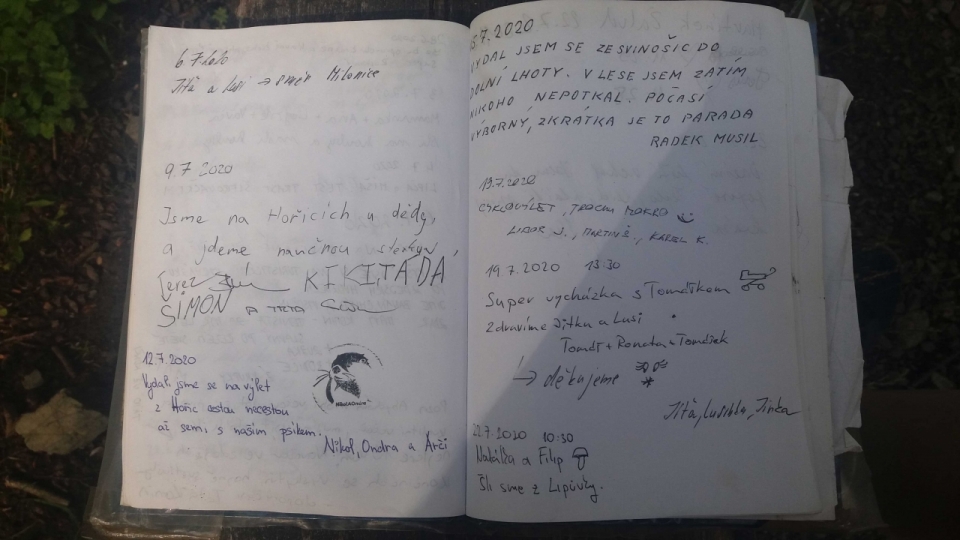 6.7.2020
Jíťa a Lusi → směr Milonice
9.7.2020
Jsme na Hořicích u dědy,
a jdeme naučnou stezkou,
Terez KIKI TÁDA,
ŠIMON A TETA
12.7.2020
Vydali jsme se na výlet
z Hořic cestou necestou
až sem, s naším psíkem.
Nikol, Ondra a Arči
.7.2020
VYDAL JSEM SE ZE SVINOŠIC DO
DOLNÍ LHOTY. V LESE JSEM ZATÍM
NIKOHO NEPOTKAL. POČASÍ
VÝBORNÝ, ZKRÁTKA JE TO PARÁDA
RADEK MUSIL
19.7.2020
CYKLOVÝLET, TROCHU MOKRO
LIBOR J., MARTIN Š., KAREL K.
19.7.2020 13:30
Super vycházka s Tomáškem
Zdravíme Jitku a Lusi
Tomáš + Renata + Tomášek
→ děkujeme
Jíťa, Lusinka, Jinka
22.7.2020 10:30
Natálka a Filip
Šli sme z Lipůvky.